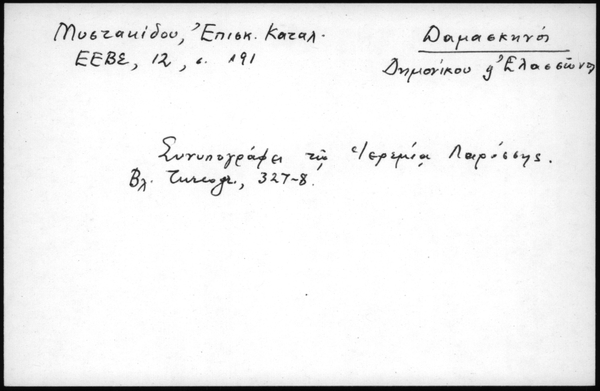 Μυστακίδου, Ἐπισκ. Καταλ.
ΕΕΒΣ, 12, σ. 191
Δαμασκηνός
Δημονίκου κ̀ Ἐλασσῶνος
Συνυπογράφει τῷ Ἱερεμίᾳ Λαρίσσης.
Βλ. Turcogr., 327-8.